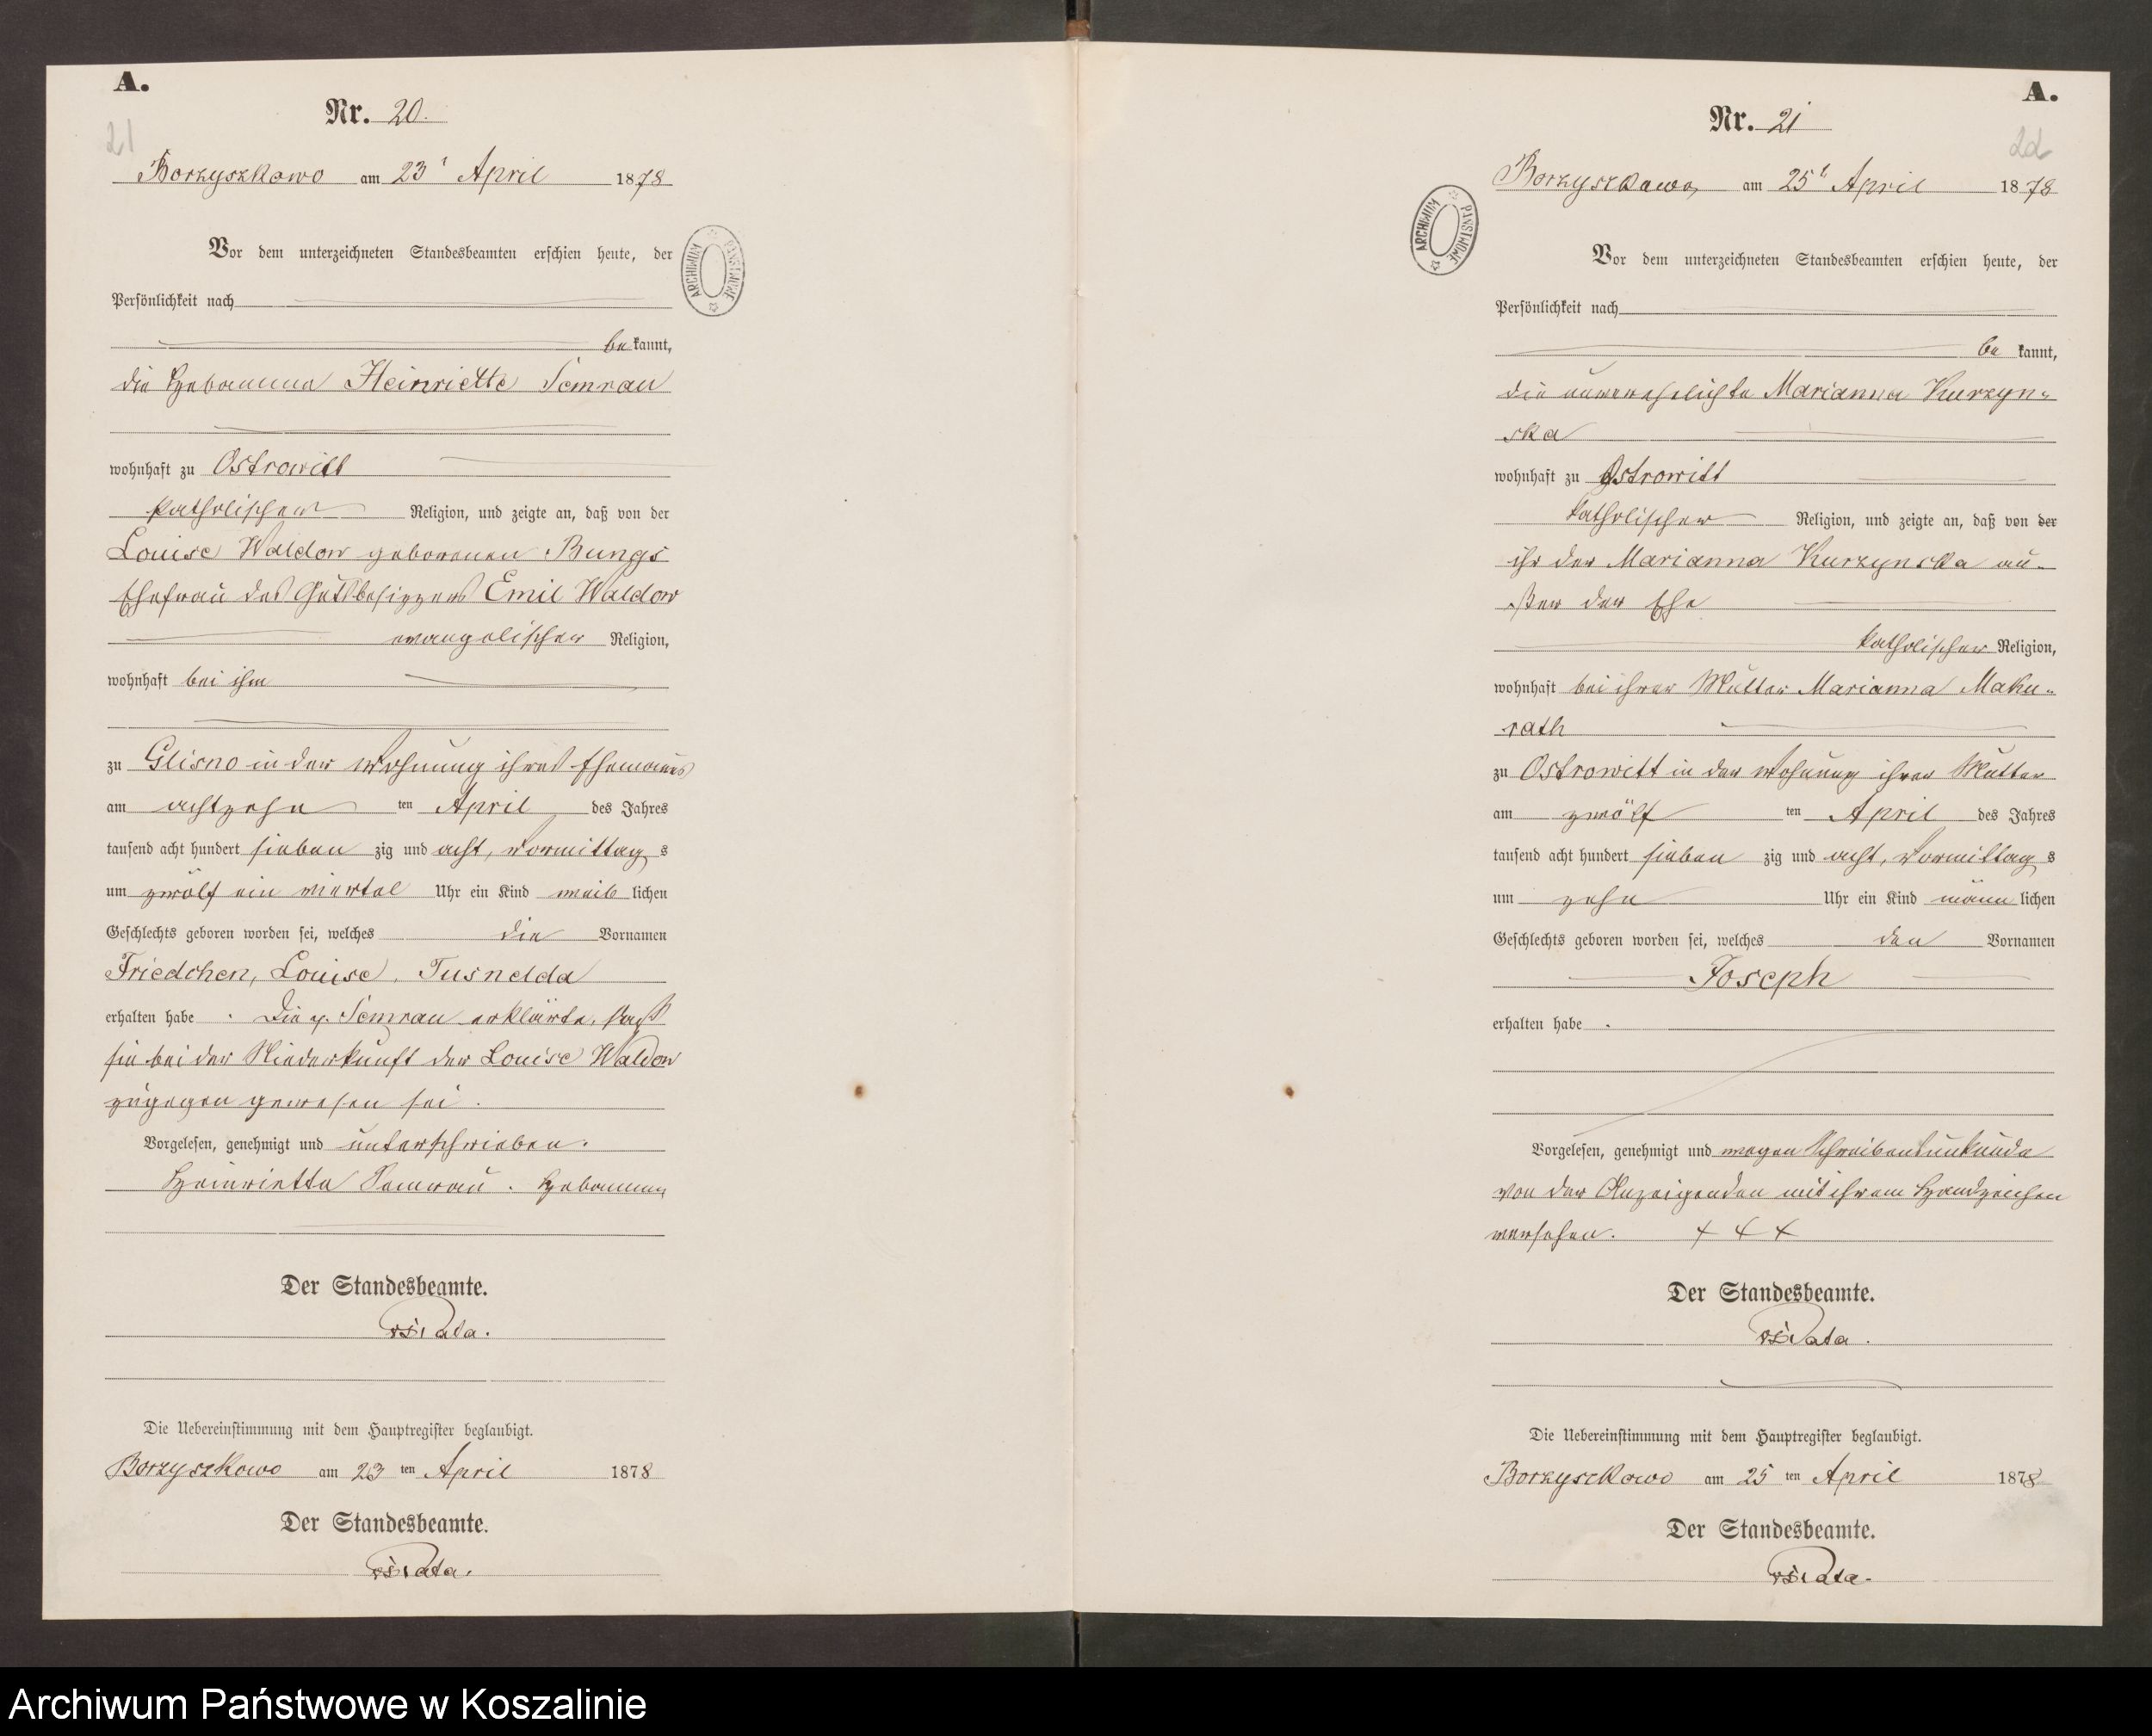 A.
Nr. 20.
21
Borzyszkowo am 23t April 1878
Vor dem unterzeichneten Standesbeamten erschien heute, der
Persönlichkeit nach
be kannt,
die Hebamme Heinriette Semrau
wohnhaft zu Ostrowitt
katholischer Religion, und zeigte an, daß von der
Louise Waldow geborenen Bungs
Ehefrau des Gutsbesitzers Emil Waldow
evangelischer Religion,
wohnhaft bei ihm
zu Glisno in der Wohnung ihres Ehemanns
am achtzehn ten April des Jahres
tausend acht hundert sieben zig und acht, Vormittag s
um zwölf ein viertel Uhr ein Kind weib lichen
Geschlechts geboren worden sei, welches die Vornamen
Friedchen, Louise, Tusnelda
erhalten habe. Die p. Semrau erklärte, daß
sie bei der Niederkunft der Louise Waldow
zugegen gewesen sei.
Vorgelesen, genehmigt und unterschrieben.
Heinriette Semrau. Hebamme
Der Standesbeamte.
Die Uebereinstimmung mit dem Hauptregister beglaubigt.
Borzyszkowo am 23 ten April 1878
Der Standesbeamte.
ARCHIWUM PAŃSTWOWE
A.
Nr. 21
22
Borzyszkowo, am 25t April 1878
ARCHIWUM PAŃSTWOWE
Vor dem unterzeichneten Standesbeamten erschien heute, der
Persönlichkeit nach
be kannt,
die unverehelichte Marianna Kurzyn-
ska
wohnhaft zu Ostrowitt
katholischer Religion, und zeigte an, daß von der
ihr der Marianna Kurzynska au-
ßer der Ehe
katholischer Religion,
wohnhaft bei ihrer Mutter Marianna Maku-
rath
zu Ostrowitt in der Wohnung ihrer Mutter
am zwölf ten April des Jahres
tausend acht hundert sieben zig und acht, Vormittag s
um zehn Uhr ein Kind männ lichen
Geschlechts geboren worden sei, welches den Vornamen
Joseph
erhalten habe.
Vorgelesen, genehmigt und wegen Schreibensunkunde
von der Anzeigenden mit ihrem Handzeichen
versehen. + + +
Der Standesbeamte.
Die Uebereinstimmung mit dem Hauptregister beglaubigt.
Borzyszkowo am 25 ten April 1878
Der Standesbeamte.
Archiwum Państwowe w Koszalinie